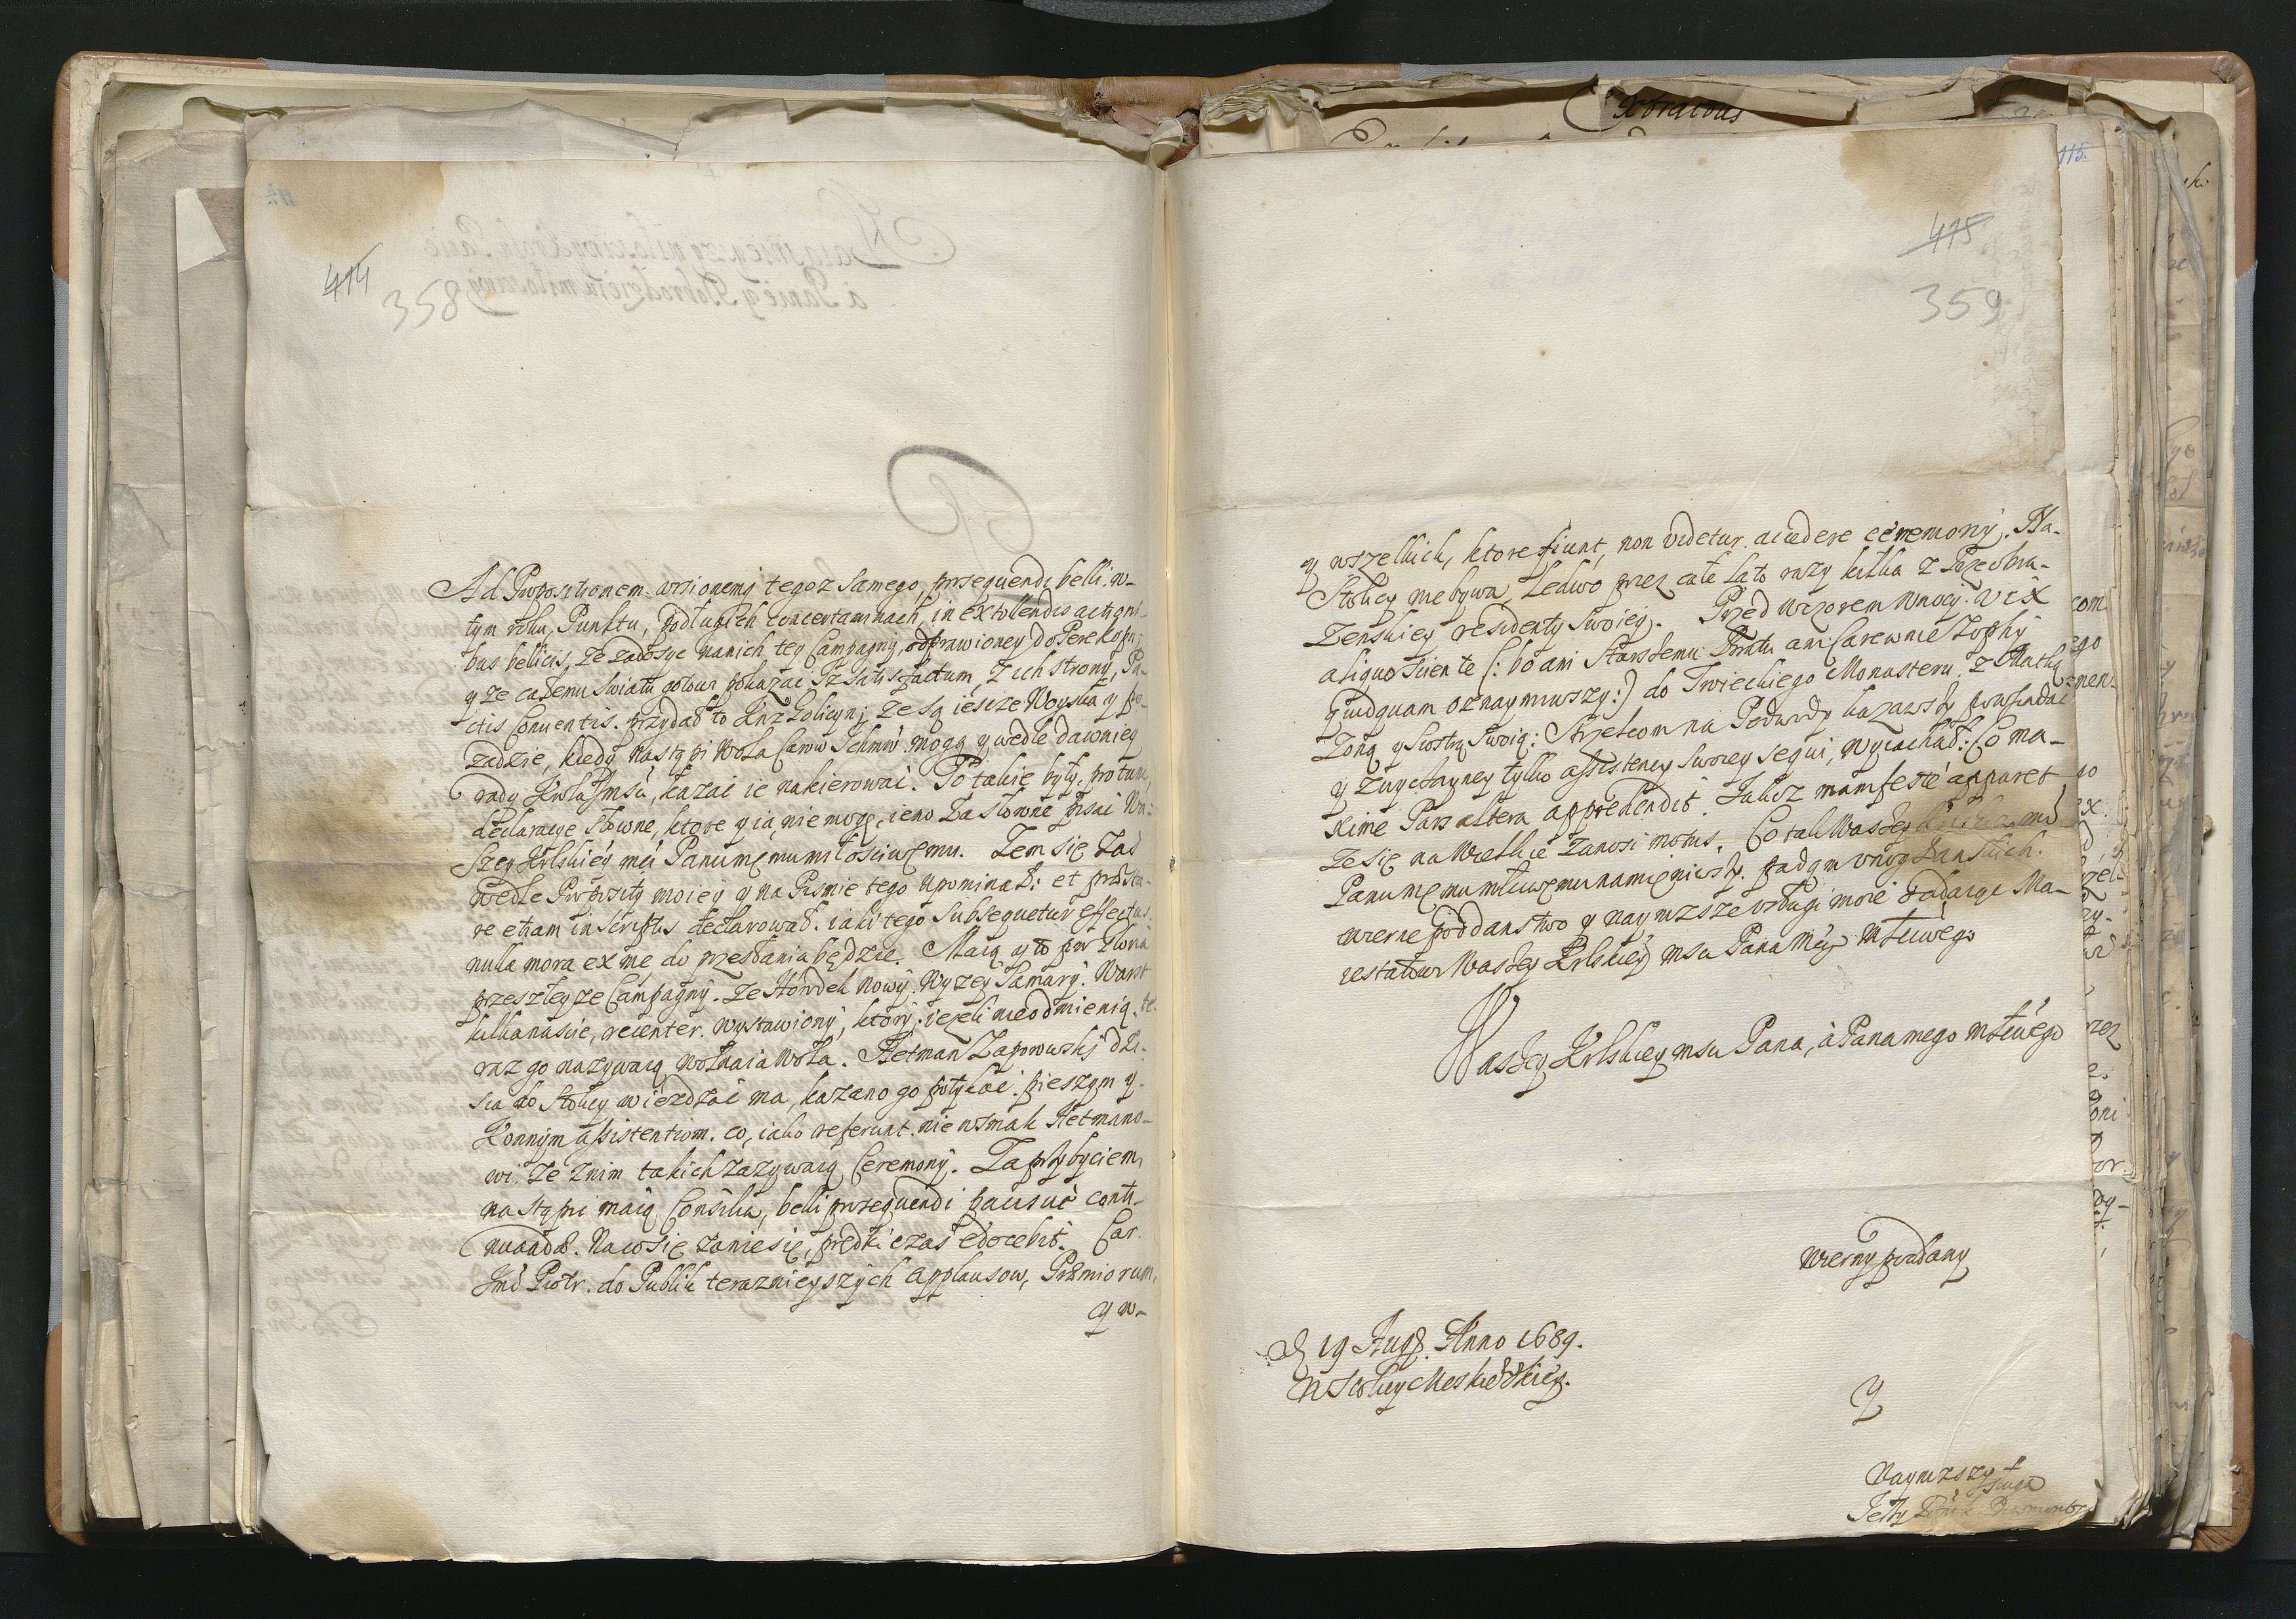 414
358
Ad Propositionem wzionemj tegoz samego, prsequendi belli w-
tym roku, Punktu, podługich concertaminach, in extollendis actioni-
bus bellicis, ze zadosyc nanich tey Campagny, odprawioney do Perekopu;
y ze całemu swiatu gotowi pokazac Iz satisfactum, z ich strony, Pa-
ctis Conventis. przydał to Knz Golicyn; ze są iescze Woyska y po-
zadzie, kiedy nastąpi Wola Carow Ichmw. mogą y wedle dawniey
rady Krola Jmsci, kazac ie nakierowac. To takie były, pro tunc,
declaracye słowne, ktore y ia, nie mogę, ieno za słowne pisac Wa-
szey Krlskiey mci Panu mę mu miłosciwemu. Zem się zas
wedle Propozity moiey y na Pismie tego upominał: et præsta-
re etiam in scriptis declarował. iak tego subsequetur effectus
nulla mora ex me do przesłania będzie. Maią y to pro gloria
przeszłey ze Campagny. ze Horodek nowy. Wyzey Samary. Worst
kilkanascie, recenter. wystawiony, ktory, iezeli nieodmienią, te-
raz go nazywaią wolnaia Wola. Hetman Zaporowski dzi-
sia do Stolicy wiezdzac ma, kazano go potykac. pieszym y-
Konnym assistentiom. co, iako referunt. nie w smak Hetmano-
wi. ze z nim takich zazywaią Ceremony. Za przybyciem,
nastąpi maią Consilia, belli prosequendi pacisue conti-
nuandæ. Na co się zaniesie, prędki czas edocebit. Car.
Jmc Piotr. do Publik teraznieyszych applausow, Præmiorum,
y w-
115.
415
359
y wszelkich, ktore fiunt, non videtur accedere ceremony. Na-
Stolicy nie bywa, Ledwo przez całe lato razy kilka z Preobra-
Zenskiey residenty swoiey. Przed wczorem w nocy. vix
aliquo sciente (: bo ani starszemu Bratu ani Carewnie Zophy
quidquam oznaymiwszy :) do Troieckiego Monasteru. z Matką
Zoną y Siostrą swoią: Strzelcom na Podwody kazawszy powsiadac
y zwyczayney tylko assistency swoiey sequi, wyiachał: Co ma-
xime Pars altera apprehendit. Jakoz manifesté apparet
ze się na Wielkie zanosi motus. Co tak Waszey md
Panu mę mu młciwemu namieniwszy. padam v nog Panskich.
wierne poddanstwo y naynizsze vsługi moie oddaiąc Ma-
iestatowi Waszey Krlskiey msci Pana Meg młciwego
Waszey Krlskiey msci Pana, à Pana mego młciwego
wierny poddany
D 19 Aug. Anno 1689.
w Stolicy Moskiewskiey.
y
Naynizszy
sługa